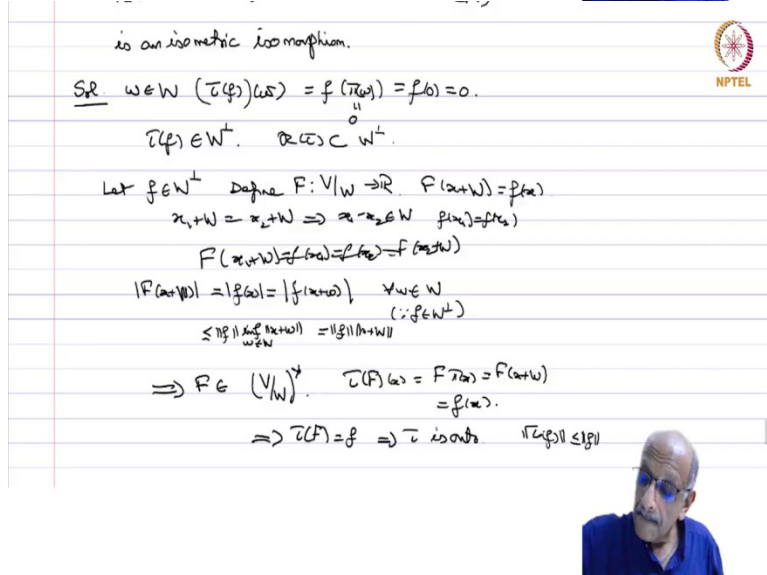 is an isometric isomorphism.
NPTEL
Sol. w∈W (τ(f))(w) = f(π(w)) = f(0) = 0.
"
0
τ(f) ∈ W^⊥. R(τ) ⊂ W^⊥.
Let f∈W^⊥ Define F: V/W → ℝ. F(x+W) = f(x)
x₁+W = x₂+W ⇒ x₁-x₂∈W f(x₁)=f(x₂)
F(x₁+W)=f(x₁)=f(x₂)=F(x₂+W)
|F(x+W)| = |f(x)| = |f(x+w)| ∀w∈W
(∵ f∈W^⊥)
≤ ‖f‖ inf ‖x+w‖ = ‖f‖ ‖x+W‖
w∈W
⇒ F ∈ (V/W)^*. τ(F)(x) = F π(x) = F(x+W)
= f(x).
⇒ τ(F) = f ⇒ τ is onto. ‖τ(f)‖ ≤ ‖f‖